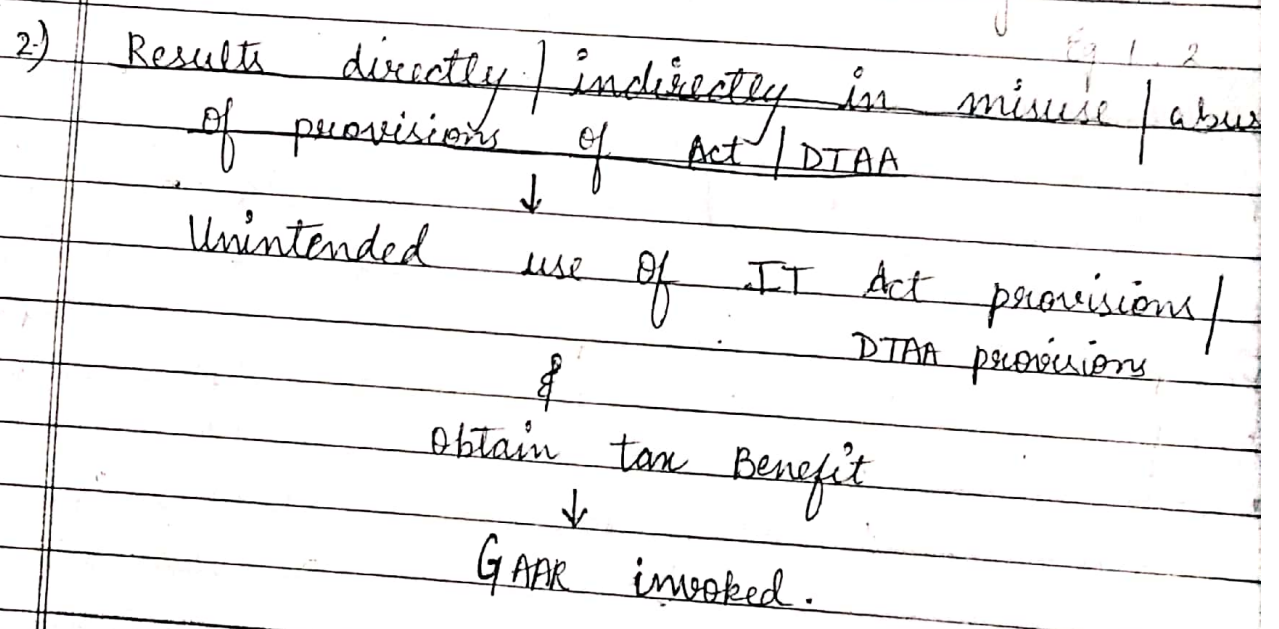 Eg 1. 2
2) Results directly / indirectly in misuse / abus
of provisions of Act / DTAA
↓
Unintended use of IT Act provisions /
DTAA provisions
&
Obtain tax Benefit
↓
GAAR invoked.